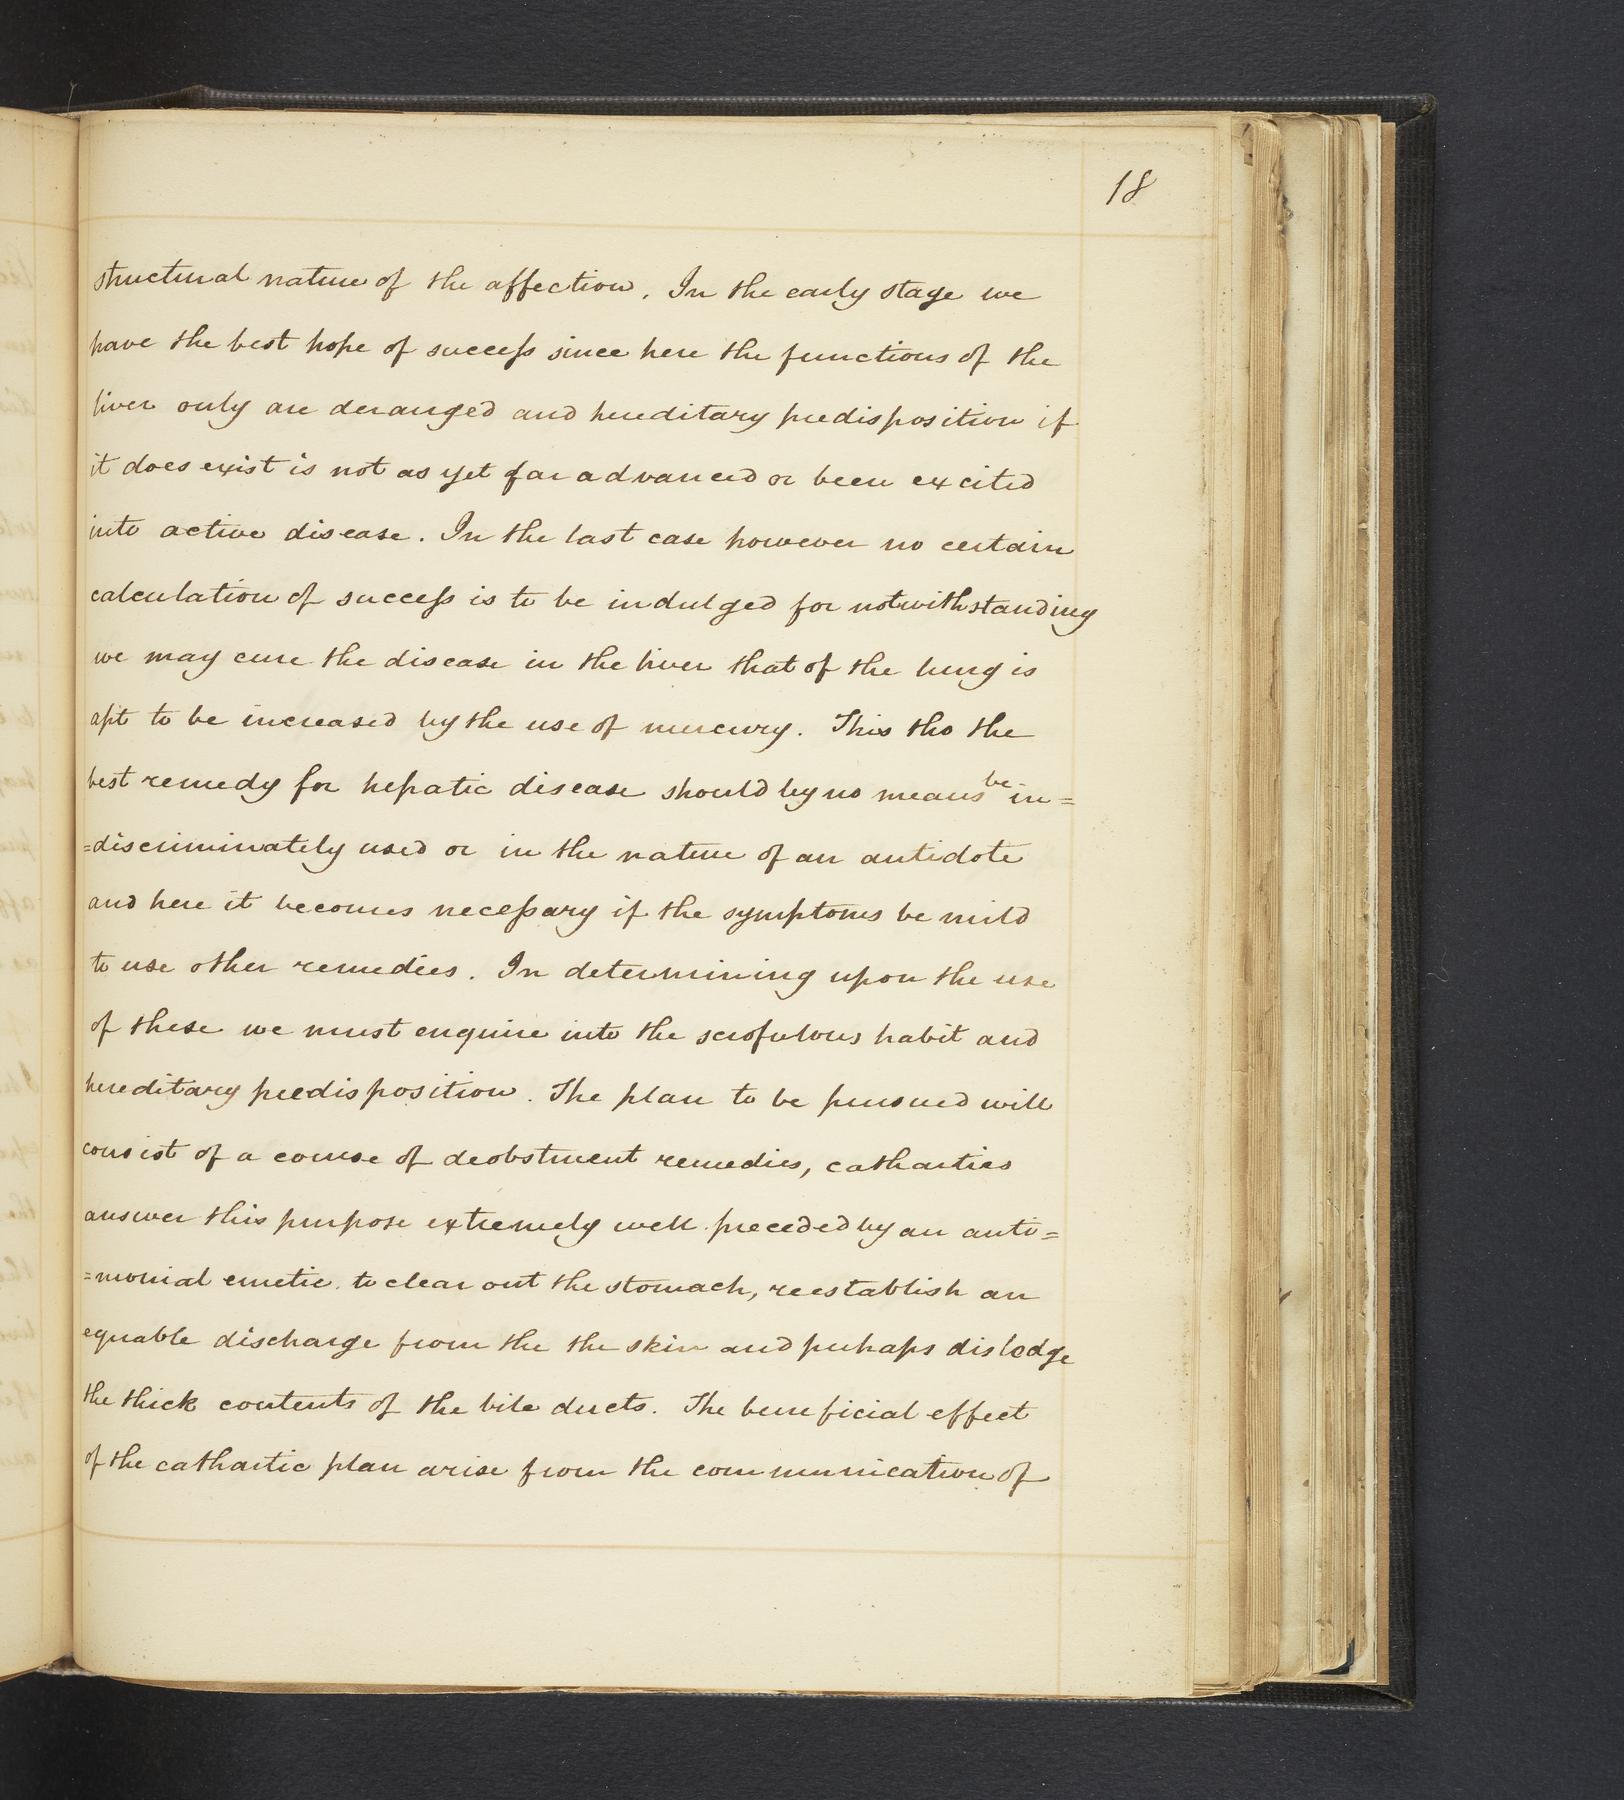 18
structural nature of the affection. In the early stage we
have the best hope of success since here the functions of the
liver only are deranged and hereditary predisposition if
it does exist is not as yet far advanced or been excited
into active disease. In the last case however no certain
calculation of success is to be indulged for notwithstanding
we may cure the disease in the liver that of the lung is
apt to be increased by the use of mercury. This tho the
best remedy for hepatic disease should by no means be in=
=discriminately used or in the nature of an antidote
and here it becomes necessary if the symptoms be mild
to use other remedies. In determining upon the use
of these we must enquire into the scrofulous habit and
hereditary predisposition. The plan to be pursued will
consist of a course of deobstruent remedies, cathartics
answer this purpose extremely well preceded by an anti=
=monial emetic to clear out the stomach, reestablish an
equable discharge from the the skin and perhaps dislodge
the thick contents of the bile ducts. The beneficial effect
of the cathartic plan arise from the communication of